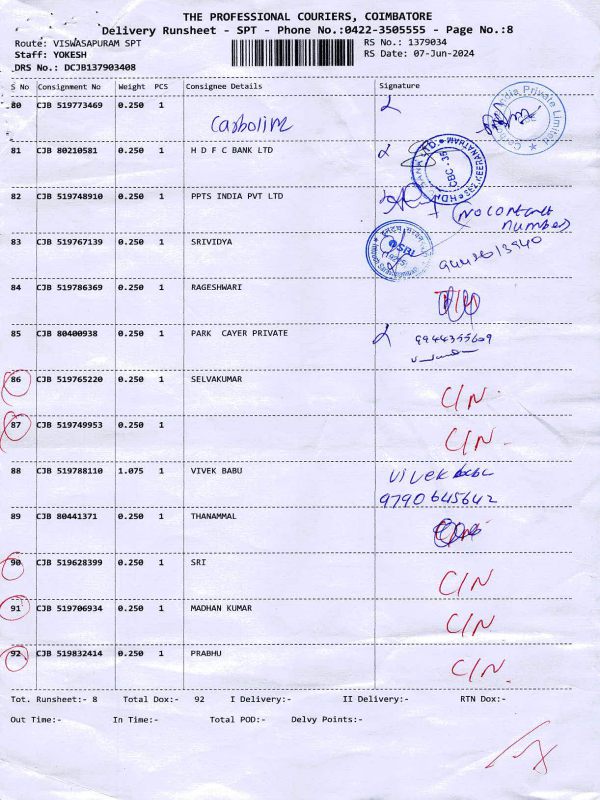 THE PROFESSIONAL COURIERS, COIMBATORE
Delivery Runsheet - SPT - Phone No.:0422-3505555 - Page No.:8
Route: VISWASAPURAM SPT RS No.: 1379034
Staff: YOKESH RS Date: 07-Jun-2024
DRS No.: DCJB137903408
S No Consignment No Weight PCS Consignee Details Signature
80 CJB 519773469 0.250 1
Carboline
India Private Limited
81 CJB 80210581 0.250 1 H D F C BANK LTD
82 CJB 519748910 0.250 1 PPTS INDIA PVT LTD
(No contact
number)
83 CJB 519767139 0.250 1 SRIVIDYA
SBI
9442613940
84 CJB 519786369 0.250 1 RAGESHWARI
85 CJB 80400938 0.250 1 PARK CAYER PRIVATE
9944355609
86 CJB 519765220 0.250 1 SELVAKUMAR
C/N
87 CJB 519749953 0.250 1
C/N
88 CJB 519788110 1.075 1 VIVEK BABU
Vivek
9790645642
89 CJB 80441371 0.250 1 THANAMMAL
90 CJB 519628399 0.250 1 SRI
C/N
91 CJB 519706934 0.250 1 MADHAN KUMAR
C/N
92 CJB 519832414 0.250 1 PRABHU
C/N
Tot. Runsheet:- 8 Total Dox:- 92 I Delivery:- II Delivery:- RTN Dox:-
Out Time:- In Time:- Total POD:- Delvy Points:-